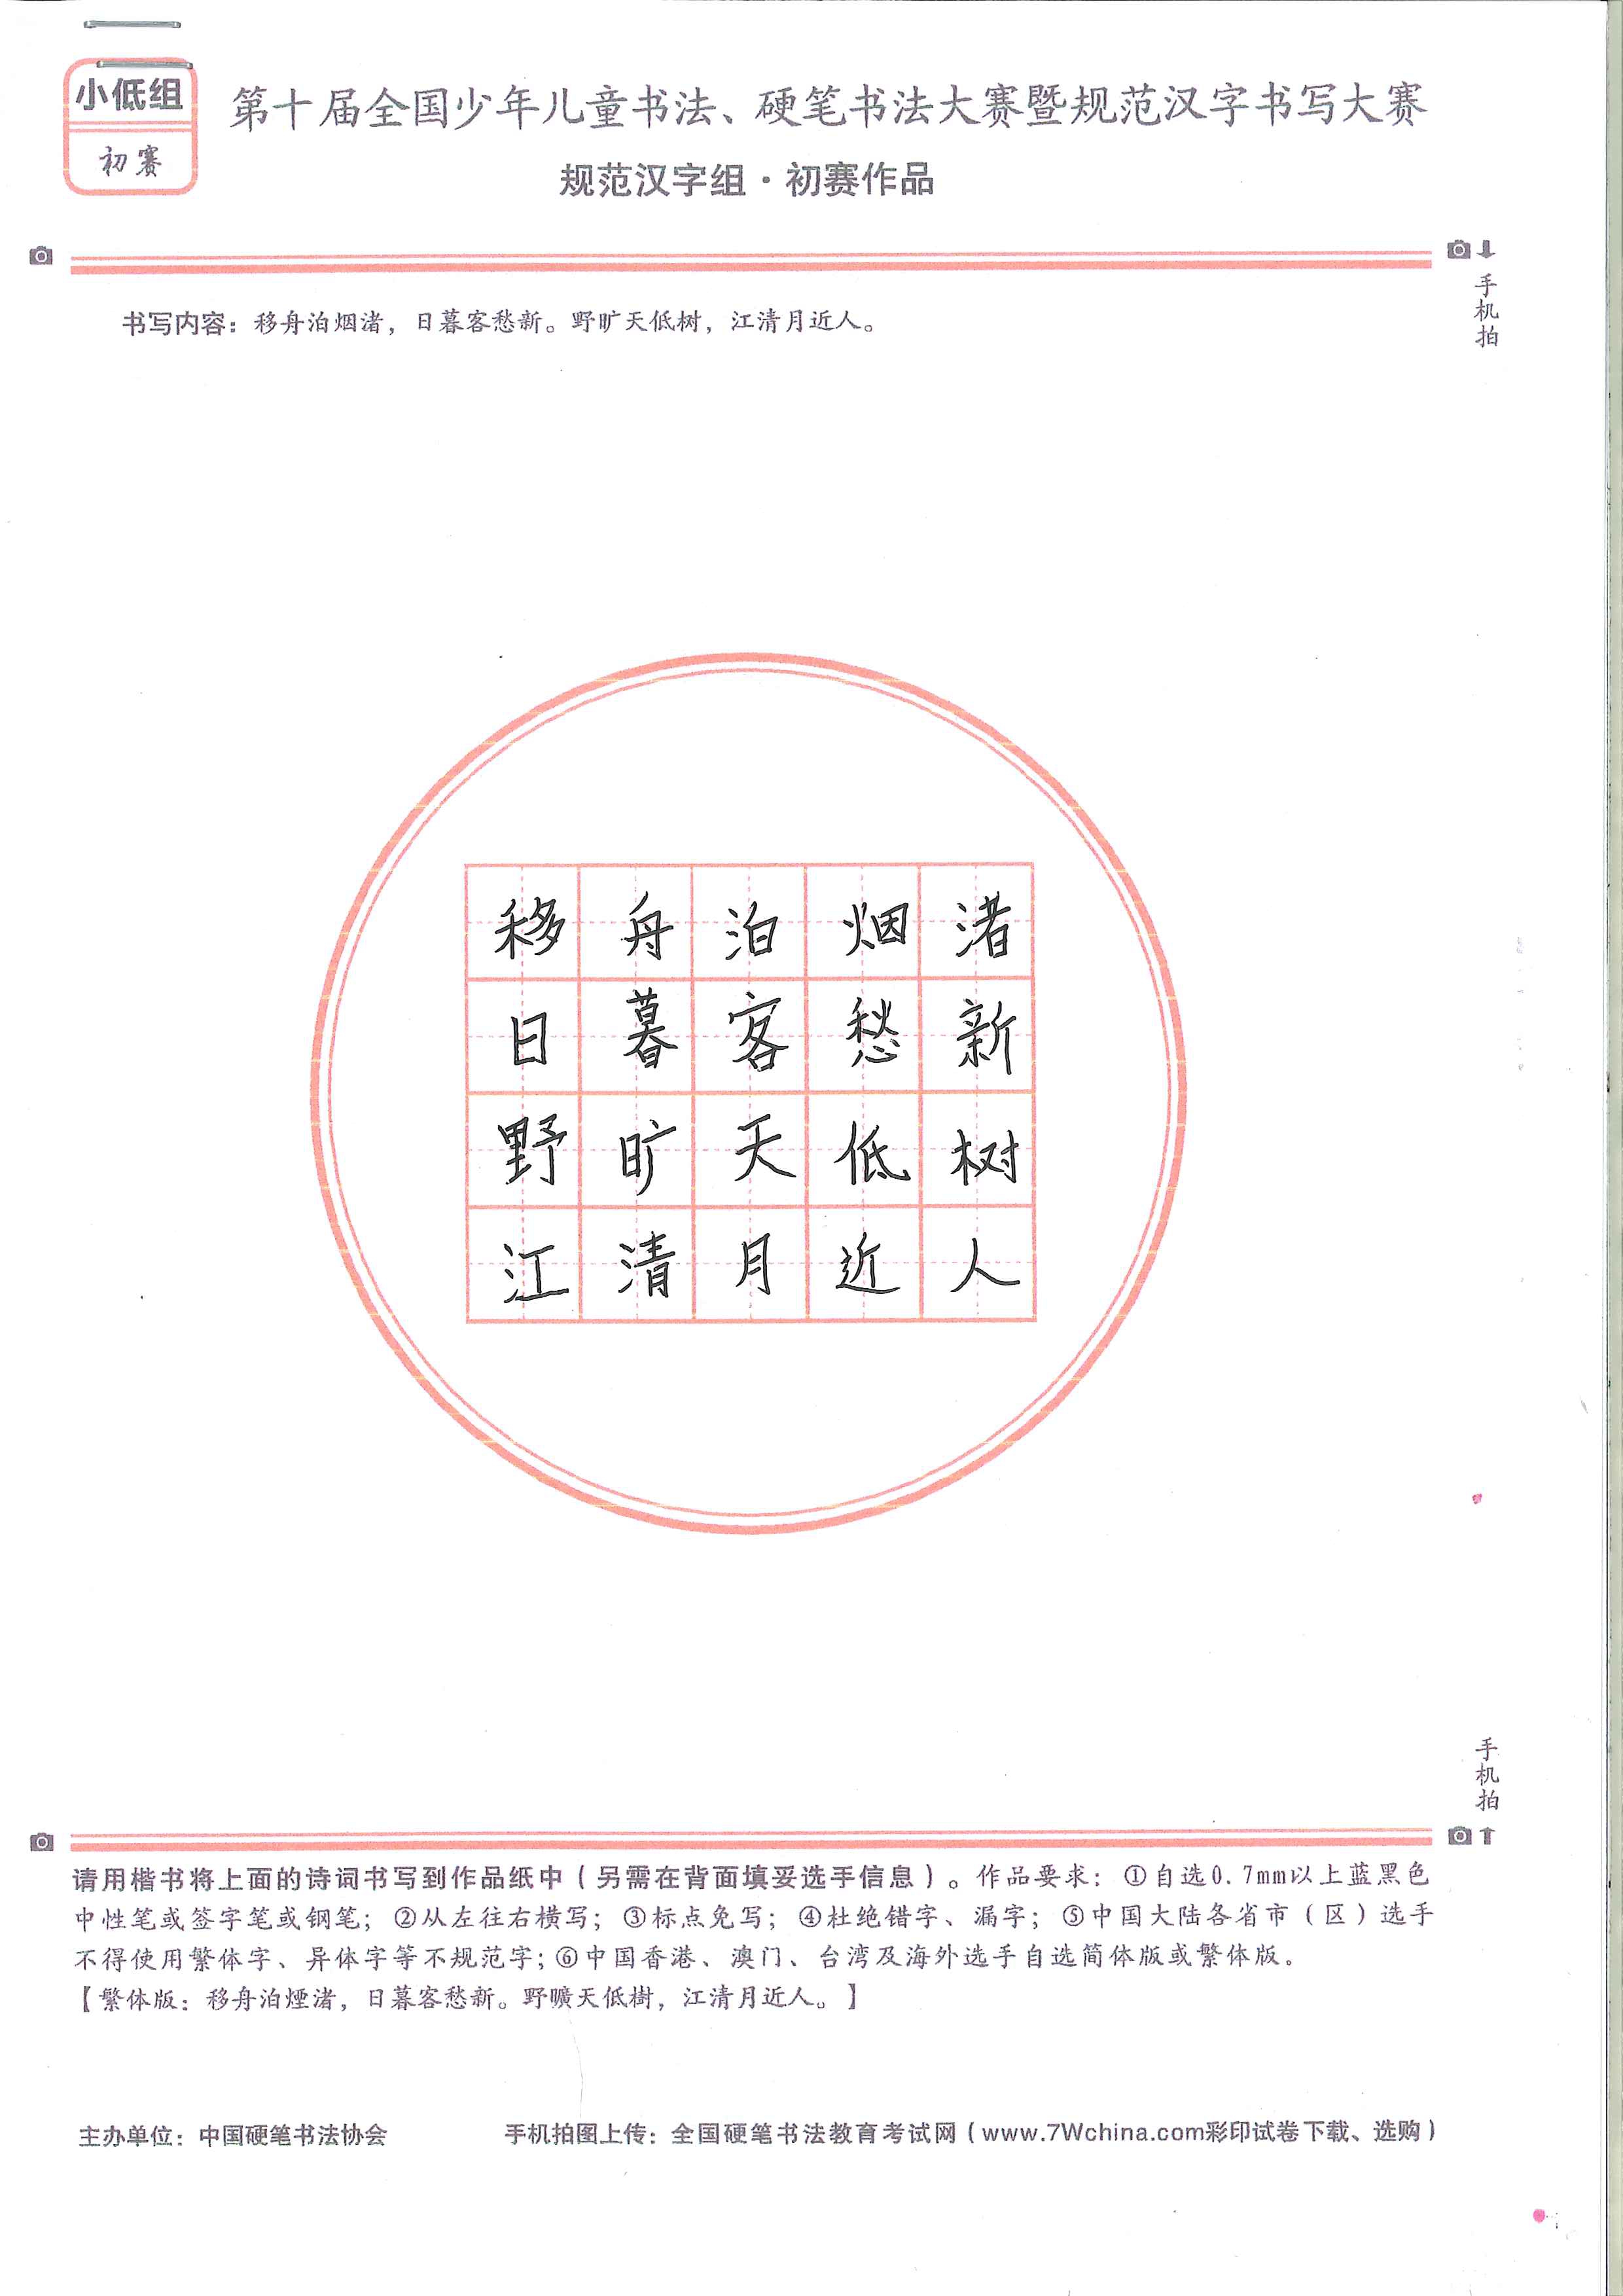 小低组
初赛
第十届全国少年儿童书法、硬笔书法大赛暨规范汉字书写大赛
规范汉字组·初赛作品
手机拍
书写内容：移舟泊烟渚，日暮客愁新。野旷天低树，江清月近人。
移舟泊烟渚
日暮客愁新
野旷天低树
江清月近人
手机拍
请用楷书将上面的诗词书写到作品纸中（另需在背面填妥选手信息）。作品要求：①自选0.7mm以上蓝黑色
中性笔或签字笔或钢笔；②从左往右横写；③标点免写；④杜绝错字、漏字；⑤中国大陆各省市（区）选手
不得使用繁体字、异体字等不规范字；⑥中国香港、澳门、台湾及海外选手自选简体版或繁体版。
【繁体版：移舟泊煙渚，日暮客愁新。野曠天低樹，江清月近人。】
主办单位：中国硬笔书法协会
手机拍图上传：全国硬笔书法教育考试网（www.7Wchina.com彩印试卷下载、选购）